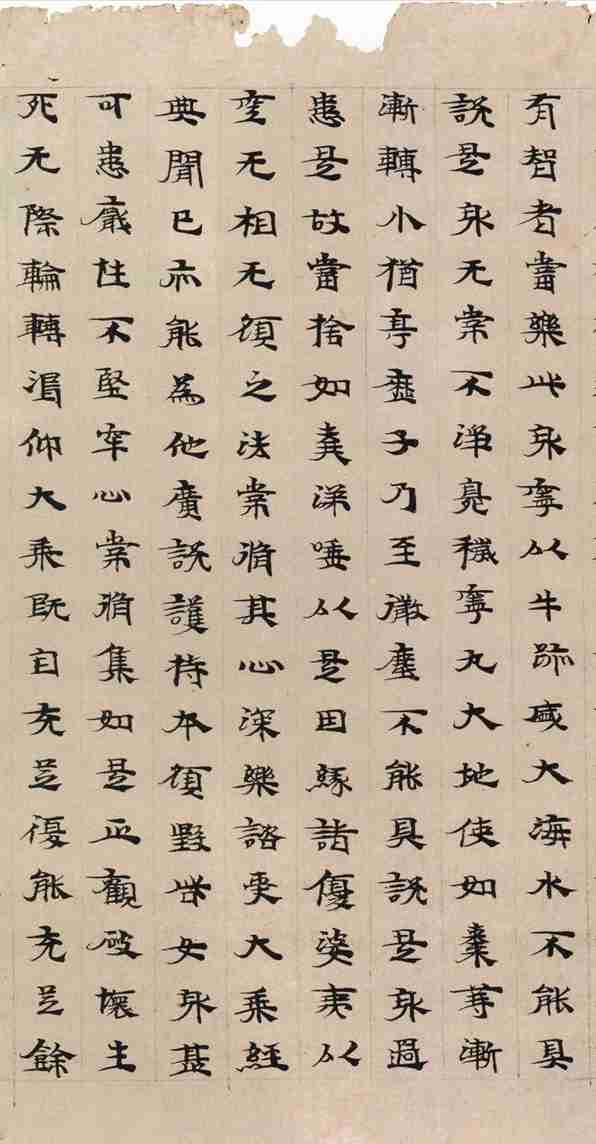 有智者當樂此身寧以牛跡盛大海水不能具
說是身无常不淨臭穢寧丸大地使如棗等漸
漸轉小猶亭歷子乃至微塵不能具說是身過
患是故當捨如棄洟唾以是因緣諸優婆夷以
空无相无願之法常脩其心深樂諮受大乘經
典聞已亦能為他廣說護持本願毀呰女身甚
可患厭性不堅牢心常脩集如是正觀破壞生
死无際輪轉渴仰大乘既自充足復能充足餘